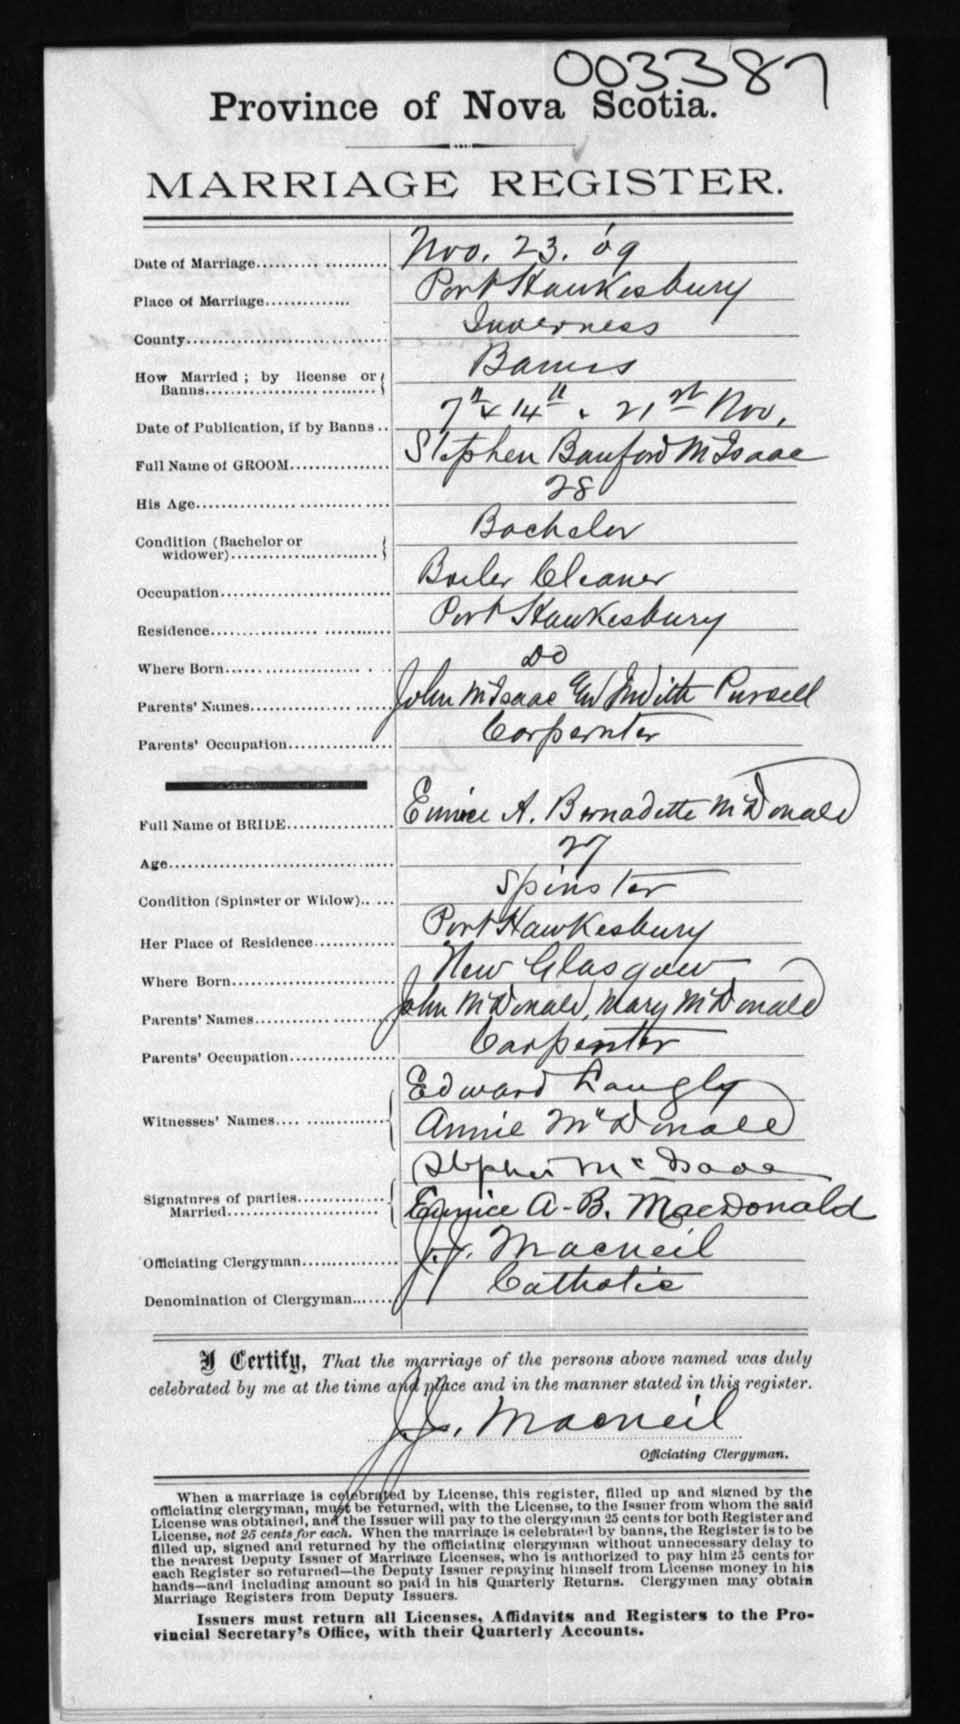 003387
Province of Nova Scotia.
MARRIAGE REGISTER.
Date of Marriage.................... Nov. 23. '09
Place of Marriage.............. Port Hawkesbury
County.................................. Inverness
How Married ; by license or Banns.................... Banns
Date of Publication, if by Banns .. 7th & 14th & 21st Nov,
Full Name of GROOM................ Stephen Banford McIsaac
His Age............................... 28
Condition (Bachelor or widower)........................ Bachelor
Occupation............................. Boiler Cleaner
Residence............................... Port Hawkesbury
Where Born...................... Do
Parents' Names...................... John McIsaac Judith Pursell
Parents' Occupation................. Carpernter
Full Name of BRIDE................. Eunice A. Bernadette McDonald
Age.................................... 27
Condition (Spinster or Widow)..... Spinster
Her Place of Residence............. Port Hawkesbury
Where Born........................... New Glasgow
Parents' Names...................... John McDonald, Mary McDonald
Parents' Occupation................. Carpenter
Witnesses' Names.... ............ Edward Langly
Annie McDonald
Signatures of parties Married........................ Stephen McIsaac
Eunice A-B. MacDonald
Officiating Clergyman............... J.J. Macneil
Denomination of Clergyman....... Catholic
I Certify, That the marriage of the persons above named was duly
celebrated by me at the time and place and in the manner stated in this register.
J.J. Macneil
Officiating Clergyman.
When a marriage is celebrated by License, this register, filled up and signed by the
officiating clergyman, must be returned, with the License, to the Issuer from whom the said
License was obtained, and the Issuer will pay to the clergyman 25 cents for both Register and
License, not 25 cents for each. When the marriage is celebrated by banns, the Register is to be
filled up, signed and returned by the officiating clergyman without unnecessary delay to
the nearest Deputy Issuer of Marriage Licenses, who is authorized to pay him 25 cents for
each Register so returned—the Deputy Issuer repaying himself from License money in his
hands—and including amount so paid in his Quarterly Returns. Clergymen may obtain
Marriage Registers from Deputy Issuers.
Issuers must return all Licenses, Affidavits and Registers to the Pro-
vincial Secretary's Office, with their Quarterly Accounts.